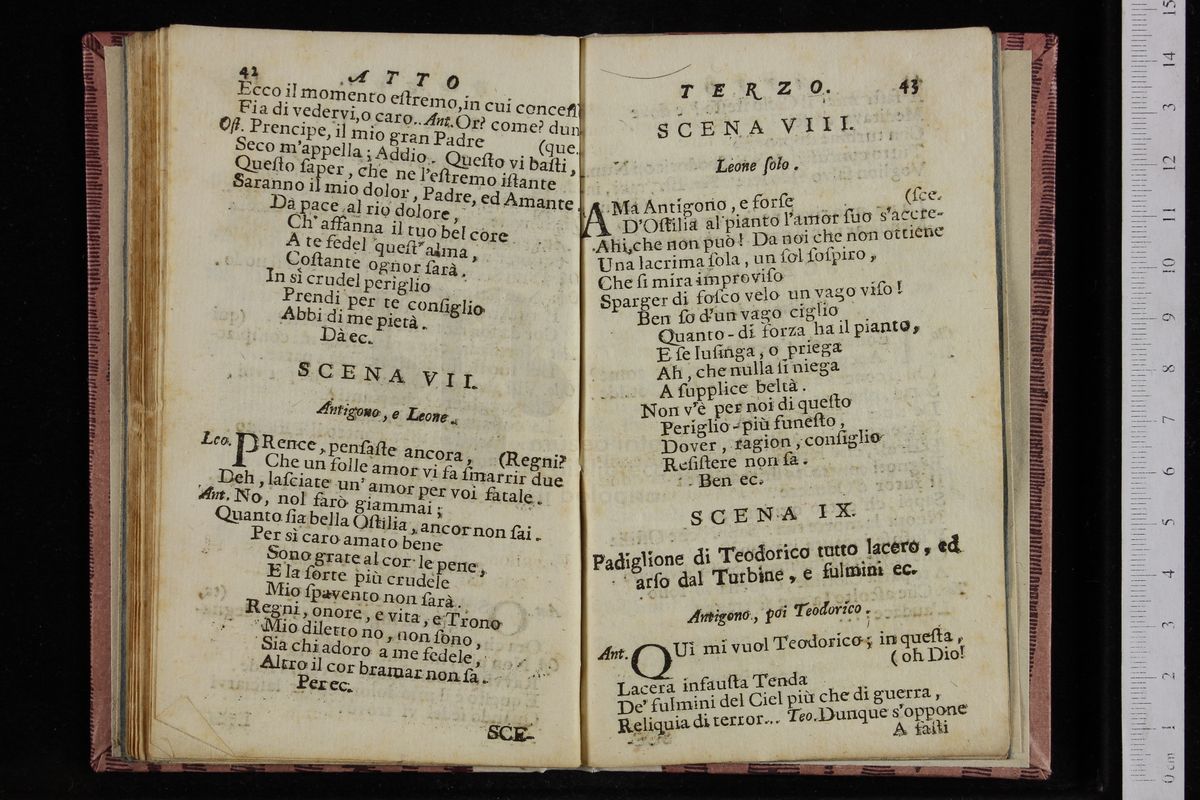 42 ATTO
Ecco il momento eſtremo, in cui conceſſ
Fia di vedervi, o caro.. Ant. Or? come? dun
Oſt. Prencipe, il mio gran Padre (que.
Seco m'appella; Addio. Queſto vi baſti,
Queſto ſaper, che ne l'eſtremo iſtante
Saranno il mio dolor, Padre, ed Amante.
Dà pace al rio dolore,
Ch' affanna il tuo bel core
A te fedel queſt' alma,
Coſtante ognor ſarà.
In sì crudel periglio
Prendi per te conſiglio
Abbi di me pietà.
Dà ec.
SCENA VII.
Antigono, e Leone.
Leo. PRence, penſaſte ancora, (Regni?
Che un folle amor vi fa ſmarrir due
Deh, laſciate un' amor per voi fatale.
Ant. No, nol farò giammai;
Quanto ſia bella Oſtilia, ancor non ſai.
Per sì caro amato bene
Sono grate al cor le pene,
E la ſorte più crudele
Mio ſpavento non farà.
Regni, onore, e vita, e Trono
Mio diletto no, non ſono,
Sia chi adoro a me fedele,
Altro il cor bramar non ſa.
Per ec.
SCE-
TERZO. 43
SCENA VIII.
Leone ſolo.
AMa Antigono, e forſe (ſce.
D'Oſtilia al pianto l'amor ſuo s'accre-
Ahi, che non può! Da noi che non ottiene
Una lacrima ſola, un ſol ſoſpiro,
Che ſi mira improviſo
Sparger di foſco velo un vago viſo!
Ben ſo d'un vago ciglio
Quanto-di forza ha il pianto,
E ſe luſinga, o priega
Ah, che nulla ſi niega
A ſupplice beltà.
Non v'è per noi di queſto
Periglio-più funeſto,
Dover, ragion, conſiglio
Reſiſtere non ſa.
Ben ec.
SCENA IX.
Padiglione di Teodorico tutto lacero, ed
arſo dal Turbine, e fulmini ec.
Antigono, poi Teodorico.
Ant. QUì mi vuol Teodorico; in queſta,
(oh Dio!
Lacera infauſta Tenda
De' fulmini del Ciel più che di guerra,
Reliquia di terror... Teo. Dunque s'oppone
A faſti
0 cm 1 2 3 4 5 6 7 8 9 10 11 12 13 14 15